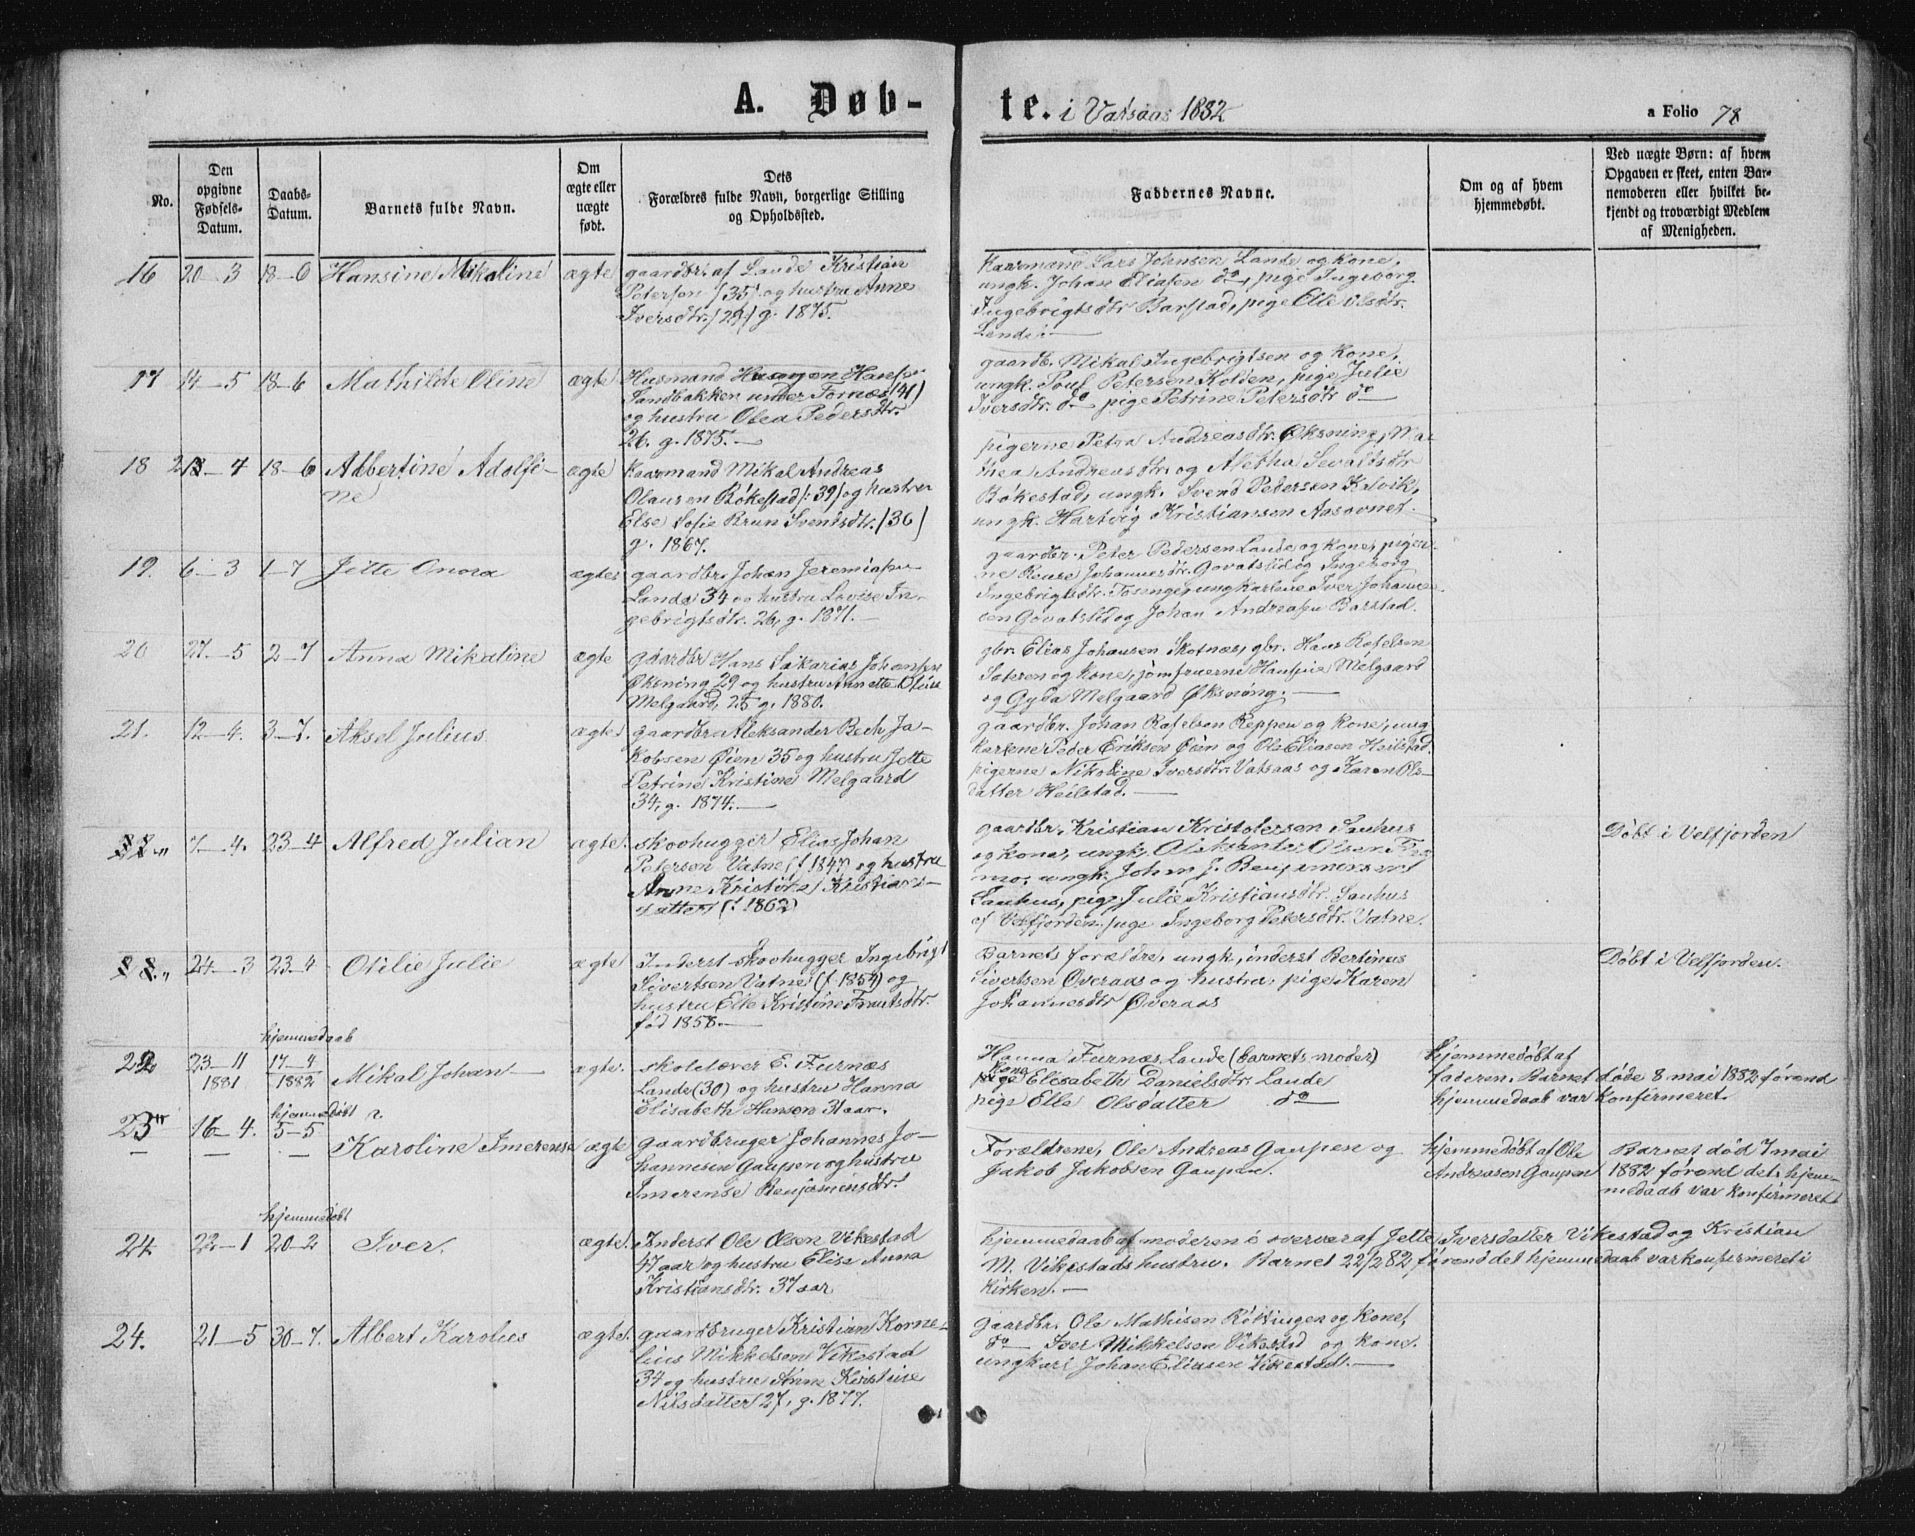 A. Døb-
te. i Vatsaas 1882
a Folio 78
No.
Den opgivne Fødsels-Datum.
Daabs-Datum.
Barnets fulde Navn.
Om ægte eller uægte født.
Dets Forældres fulde Navn, borgerlige Stilling og Opholdssted.
Faddernes Navne.
Om og af hvem hjemmedøbt.
Ved uægte Børn: af hvem Opgaven er skeet, enten Barnemoderen eller hvilket bekjendt og troværdigt Medlem af Menigheden.
16 20–3 18–6 Hansine Mikaline ægte
gaardbr. af Lande Kristian
Petersen (35) og hustru Anne
Iversdtr. (29) g. 1875.
Kaarmand Lars Johnsen Lande og kone,
ungk. Johan Eliasen do, pige Ingeborg
Ingebrigtsdtr Barstad, pige Elle Olsdtr.
Lande.
17 14–5 18–6 Mathilde Oline ægte
Husmand Hansen
Sandbakken under Fornæs (41)
og hustru Olea Pedersdtr.
26. g. 1875.
gaardb. Mikal Ingebrigtsen og kone,
ungk. Poul Petersen Kolden, pige Julie
Iversdtr. do pige Petrine Petersdtr do
18 4 18–6 Albertine Adolfi-
ne ægte
Kaarmand Mikal Andreas
Olausen Bökestad (39) og hustru
Else Sofie Brun Svendsdtr. (36)
g. 1867.
pigerne Petra Andreasdtr. Öksning, Ma-
thea Andreasdtr. og Aletha Sevaldsdtr
Bökestad, ungk. Svend Pedersen
ungk. Hartvig Kristiansen Aasovnet.
19. 6–3 1–7 Jette Onora ægte
gaardbr. Johan Jeremiasen
Lande 34 og hustru Lovise In-
gebrigtsdtr. 26, g. 1871.
gaardbr. Peter Pedersen Lande og kone, piger-
ne Johannesdtr. Govatslid og Ingeborg
Ingebrigtsdtr. ungkarlene Iver Johanne-
sen Govatslid og Johan Andreasen Barstad.
20 27–5 2–7 Anna Mikaline ægte
gaardbr Hans Sakarias Johansen
Öksning 29 og hustru Annette Otilie
Melgaard, 25 g. 1880.
gbr. Elias Johansen Skotnæs, gbr. Hans Rafelsen
Sateren og kone, jomfruerne Melgaard
og Gyda Melgaard Öksning.
21. 12–4. 3–7. Aksel Julius ægte
gaardbr Aleksander Bech Ja-
kobsen Öien 35 og hustru Jette
Petrine Kristine Melgaard
34, g. 1874.
gaardbr. Johan Rafelsen Reppen og kone, ung
karlene Peder Eriksen Öien og Ole Eliasen Heilstad,
pigerne Nikoline Iversdtr. Vatsaas og Karen Ols-
datter Heilstad.
7–4. 23–4 Alfred Julian ægte.
skovhugger Elias Johan
Petersen Vatne (f. 1847) og hustru
Anne Kristine Kristians-
datter (f. 1862)
gaardbr. Kristian Kristofersen Sauhus
og kone, ungk. Olsen
mo, ungk. Johan J. Benjaminsen
Sauhus, pige Julie Kristiansdtr. Sauhus
af Velfjorden pige Ingeborg Petersdtr. Vatne.
Döbt i Velfjorden
24–3 23–4 Otilie Julie ægte
Inderst skovhugger Ingebrigt
Sivertsen Vatne (f. 1854) og
hustru Elle Kristine Knutsdtr.
föd 1858.
Barnets forældre, ungk, inderst Bertinus
Sivertsen Överaas og hustru, pige Karen
Johannesdtr Överaas
Döbt i Velfjorden.
hjemmedaab
22 23–11 1881 17–4 1882 Mikal Johan ægte.
skolelærer E. Furnæs
Lande (30) og hustru Hanna
Elisabeth Hansen 31 aar.
Hanna Furnæs Lande (barnets moder)
kone Elisabeth Danielsdtr. Lande
pige Elle Olsdatter do
hjemmedöbt af
faderen. Barnet döde 8 mai 1882 förend
hjemmedaab var konfirmeret.
hjemmedöbt
23 16–4. 5–5 Karoline Imerense ægte
gaardbruger Johannes Jo-
hannesen Gaupen og hustru
Imerense Benjaminsdtr.
Forældrene, Ole Andreas Gaupen og
Jakob Jakobsen Gaupen.
hjemmedöbt af Ole
Andreasen Gaupen
Barnet död 7 mai
1882 förend det hjem-
medaab var konfirmeret
hjemmedöbt
24 22–1 20–2 Iver. ægte.
Inderst Ole Olsen Vikestad
47 aar og hustru Elise Anna
Kristiansdtr. 37 aar
hjemmedaab af moderen i overvær af Jette Iversdatter Vikestad og Kristian
M. Vikestads hustru. Barnet 22/2 82 förend det hjemmedaab var konfirmeret i
kirken.
24. 21–5 30–7. Albert Karolus ægte.
gaardbruger Kristian Korne-
lius Mikkelsen Vikestad
34 og hustru Anne Kristine
Nilsdatter 27, g. 1877.
gaardbr. Ole Mathisen Röttingen og kone,
do Iver Mikkelsen Vikestad og kone.
ungkarl Johan Eliasen Vikestad.